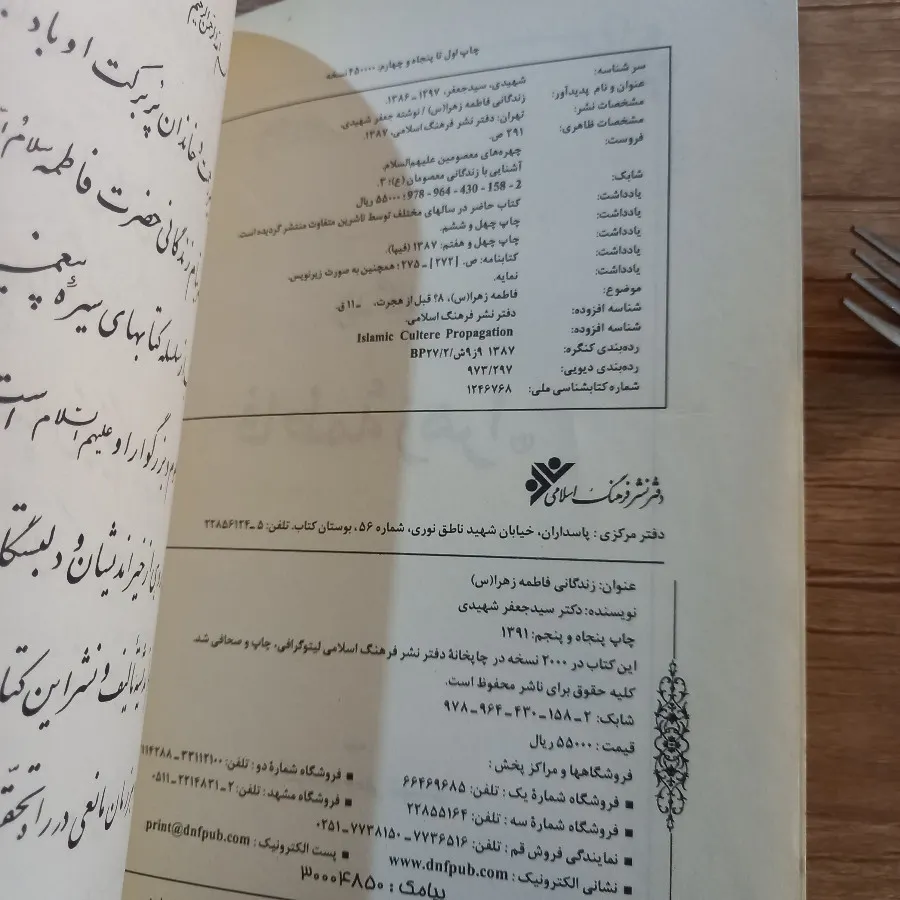 چاپ اول تا پنجاه و چهارم: ۴۵۰۰۰۰ نسخه
سرشناسه: شهیدی، سیدجعفر، ۱۲۹۷ - ۱۳۸۶.
عنوان و نام پدیدآور: زندگانی فاطمه زهرا(س) / نوشته جعفر شهیدی.
مشخصات نشر: تهران: دفتر نشر فرهنگ اسلامی، ۱۳۸۷.
مشخصات ظاهری: ۲۹۱ ص.
فروست: چهره‌های معصومین علیهم‌السلام.
آشنایی با زندگانی معصومان (ع)؛ ۳.
شابک: 978 - 964 - 430 - 158 - 2؛ ۵۵۰۰۰ ریال
یادداشت: کتاب حاضر در سالهای مختلف توسط ناشرین متفاوت منتشر گردیده است.
یادداشت: چاپ چهل و ششم.
یادداشت: چاپ چهل و هفتم: ۱۳۸۷ (فیپا).
یادداشت: کتابنامه: ص. [۲۷۲] ـ ۲۷۵؛ همچنین به صورت زیرنویس.
یادداشت: نمایه.
موضوع: فاطمه زهرا(س)، ۸؟ قبل از هجرت، ـ ۱۱ ق.
شناسه افزوده: دفتر نشر فرهنگ اسلامی.
شناسه افزوده: Islamic Cultere Propagation
رده‌بندی کنگره: ۱۳۸۷ ۹ز۹ش/BP۲۷/۲
رده‌بندی دیویی: ۹۷۳/۲۹۷
شماره کتابشناسی ملی: ۱۲۴۶۷۶۸
دفتر نشر فرهنگ اسلامی
دفتر مرکزی: پاسداران، خیابان شهید ناطق نوری، شماره ۵۶، بوستان کتاب. تلفن: ۵ ـ ۲۲۸۵۶۱۲۴
عنوان: زندگانی فاطمه زهرا(س)
نویسنده: دکتر سیدجعفر شهیدی
چاپ پنجاه و پنجم: ۱۳۹۱
این کتاب در ۲۰۰۰ نسخه در چاپخانهٔ دفتر نشر فرهنگ اسلامی لیتوگرافی، چاپ و صحافی شد.
کلیه حقوق برای ناشر محفوظ است.
شابک: ۲ ـ ۱۵۸ ـ ۴۳۰ ـ ۹۶۴ ـ ۹۷۸
قیمت: ۵۵۰۰۰ ریال
فروشگاهها و مراکز پخش:
■ فروشگاه شمارهٔ یک: تلفن: ۶۶۴۶۹۶۸۵ ■ فروشگاه شمارهٔ دو: تلفن: ۳۳۱۱۲۱۰۰ ـ
■ فروشگاه شمارهٔ سه: تلفن: ۲۲۸۵۵۱۶۴ ■ فروشگاه مشهد: تلفن: ۲ ـ ۲۲۱۴۸۳۱ ـ ۰۵۱۱
■ نمایندگی فروش قم: تلفن: ۷۷۳۶۵۱۶ ـ ۷۷۳۸۱۵۰ ـ ۰۲۵۱
■ نشانی الکترونیک: www.dnfpub.com ■ پست الکترونیک: print@dnfpub.com
پیامک: ۳۰۰۰۴۸۵۰
خاندان پربرکت او باد
زندگانی حضرت فاطمه سلام
کتابهای سیرهٔ
بزرگوار او علیهم السلام است
از خیراندیشان و
تألیف و نشر این